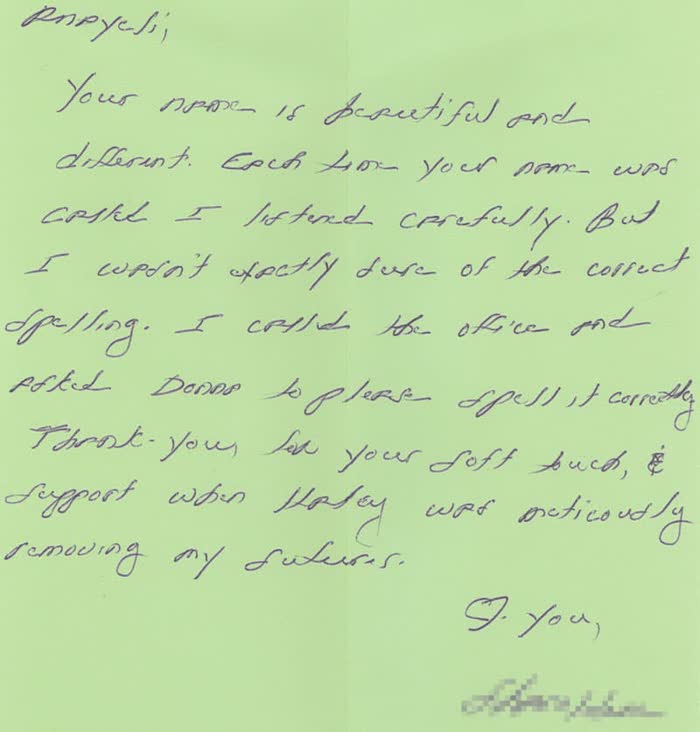 Anayeli,
Your name is beautiful and
different. Each time your name was
called I listened carefully. But
I wasn't exactly sure of the correct
spelling. I called the office and
asked Donna to please spell it correctly
Thank-you, for your soft touch, &
support when Haley was meticously
removing my sutures.
♡. You,